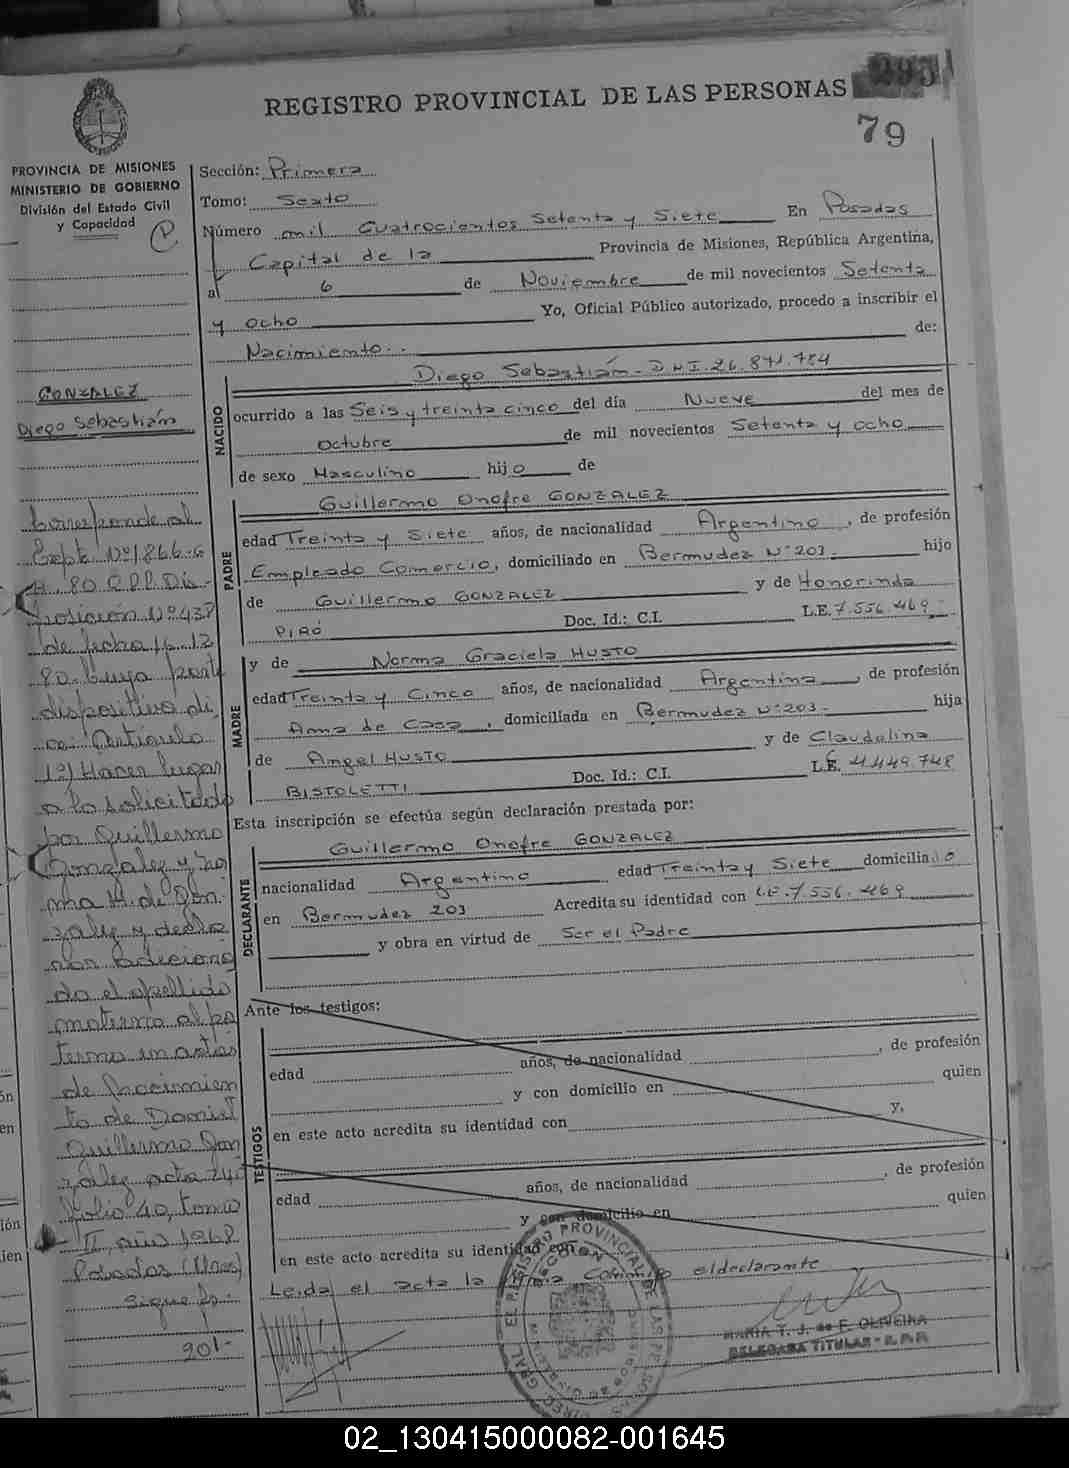 REGISTRO PROVINCIAL DE LAS PERSONAS
295
79
PROVINCIA DE MISIONES
MINISTERIO DE GOBIERNO
División del Estado Civil
y Capacidad
Sección: Primera
Tomo: Sexto
Número mil Cuatrocientos Setenta y Siete En Posadas
Capital de la Provincia de Misiones, República Argentina,
al 6 de Noviembre de mil novecientos Setenta
y Ocho Yo, Oficial Público autorizado, procedo a inscribir el
Nacimiento.. de:
Diego Sebastián - DNI. 26.871.784
NACIDO
ocurrido a las Seis y treinta cinco del día Nueve del mes de
Octubre de mil novecientos Setenta y ocho
de sexo Masculino hijo de
PADRE
Guillermo Onofre GONZALEZ
edad Treinta y Siete años, de nacionalidad Argentino, de profesión
Empleado Comercio, domiciliado en Bermudez N° 203 hijo
de Guillermo GONZALEZ y de Honorinda
PIRÓ Doc. Id.: C.I. L.E. 7.556.469
MADRE
y de Norma Graciela HUSTO
edad Treinta y Cinco años, de nacionalidad Argentina, de profesión
Ama de Casa, domiciliada en Bermudez N° 203- hija
de Angel HUSTO y de Claudolina
BISTOLETTI Doc. Id.: C.I. L.E. 4.449.748
Esta inscripción se efectúa según declaración prestada por:
DECLARANTE
Guillermo Onofre GONZALEZ
nacionalidad Argentino edad Treinta y Siete domiciliado
en Bermudez 203 Acredita su identidad con L.E. 7.556.469
y obra en virtud de Ser el Padre
Ante los testigos:
TESTIGOS
edad años, de nacionalidad , de profesión
y con domicilio en quien
en este acto acredita su identidad con y,
edad años, de nacionalidad , de profesión
y con domicilio en quien
en este acto acredita su identidad con
Leida el acta la firma conmigo el declarante
MARIA T. J. de F. OLIVEIRA
DELEGADA TITULAR - R.P.P.
GONZALEZ
Diego Sebastián
Corresponde al
Expte. Nº 1866-G
80 R.P.P. Dis-
posición Nº 437
de fecha 16-12
80- Cuya parte
dispositiva di
ce: Articulo
1º) Hacer lugar
a lo solicitado
por Guillermo
Gonzalez y No
rma H. de Gon-
zalez y declarar
adiciona
do el apellido
materno al pa
terno en actas
de Nacimien
to de Daniel
Guillermo Gon
zalez acta 241
folio 40, tomo
II, año 1968
Posadas (Mnes)
Sigue fs.
201-
02_130415000082-001645